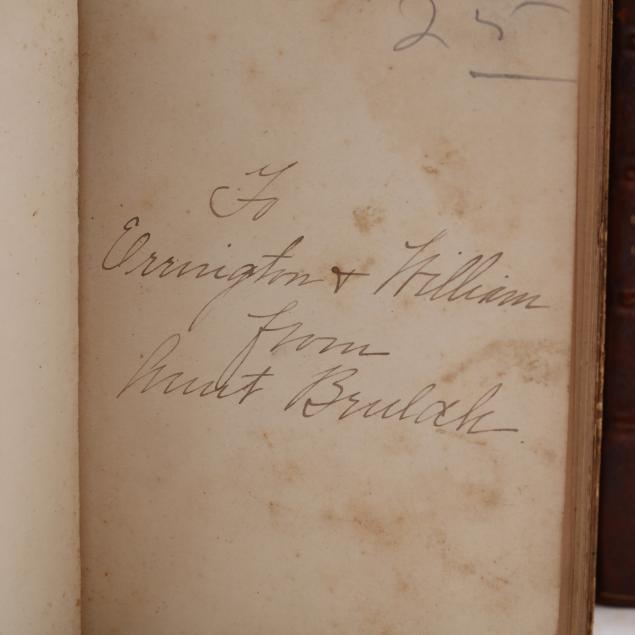 25
To
Errington + William
from
Aunt Beulah